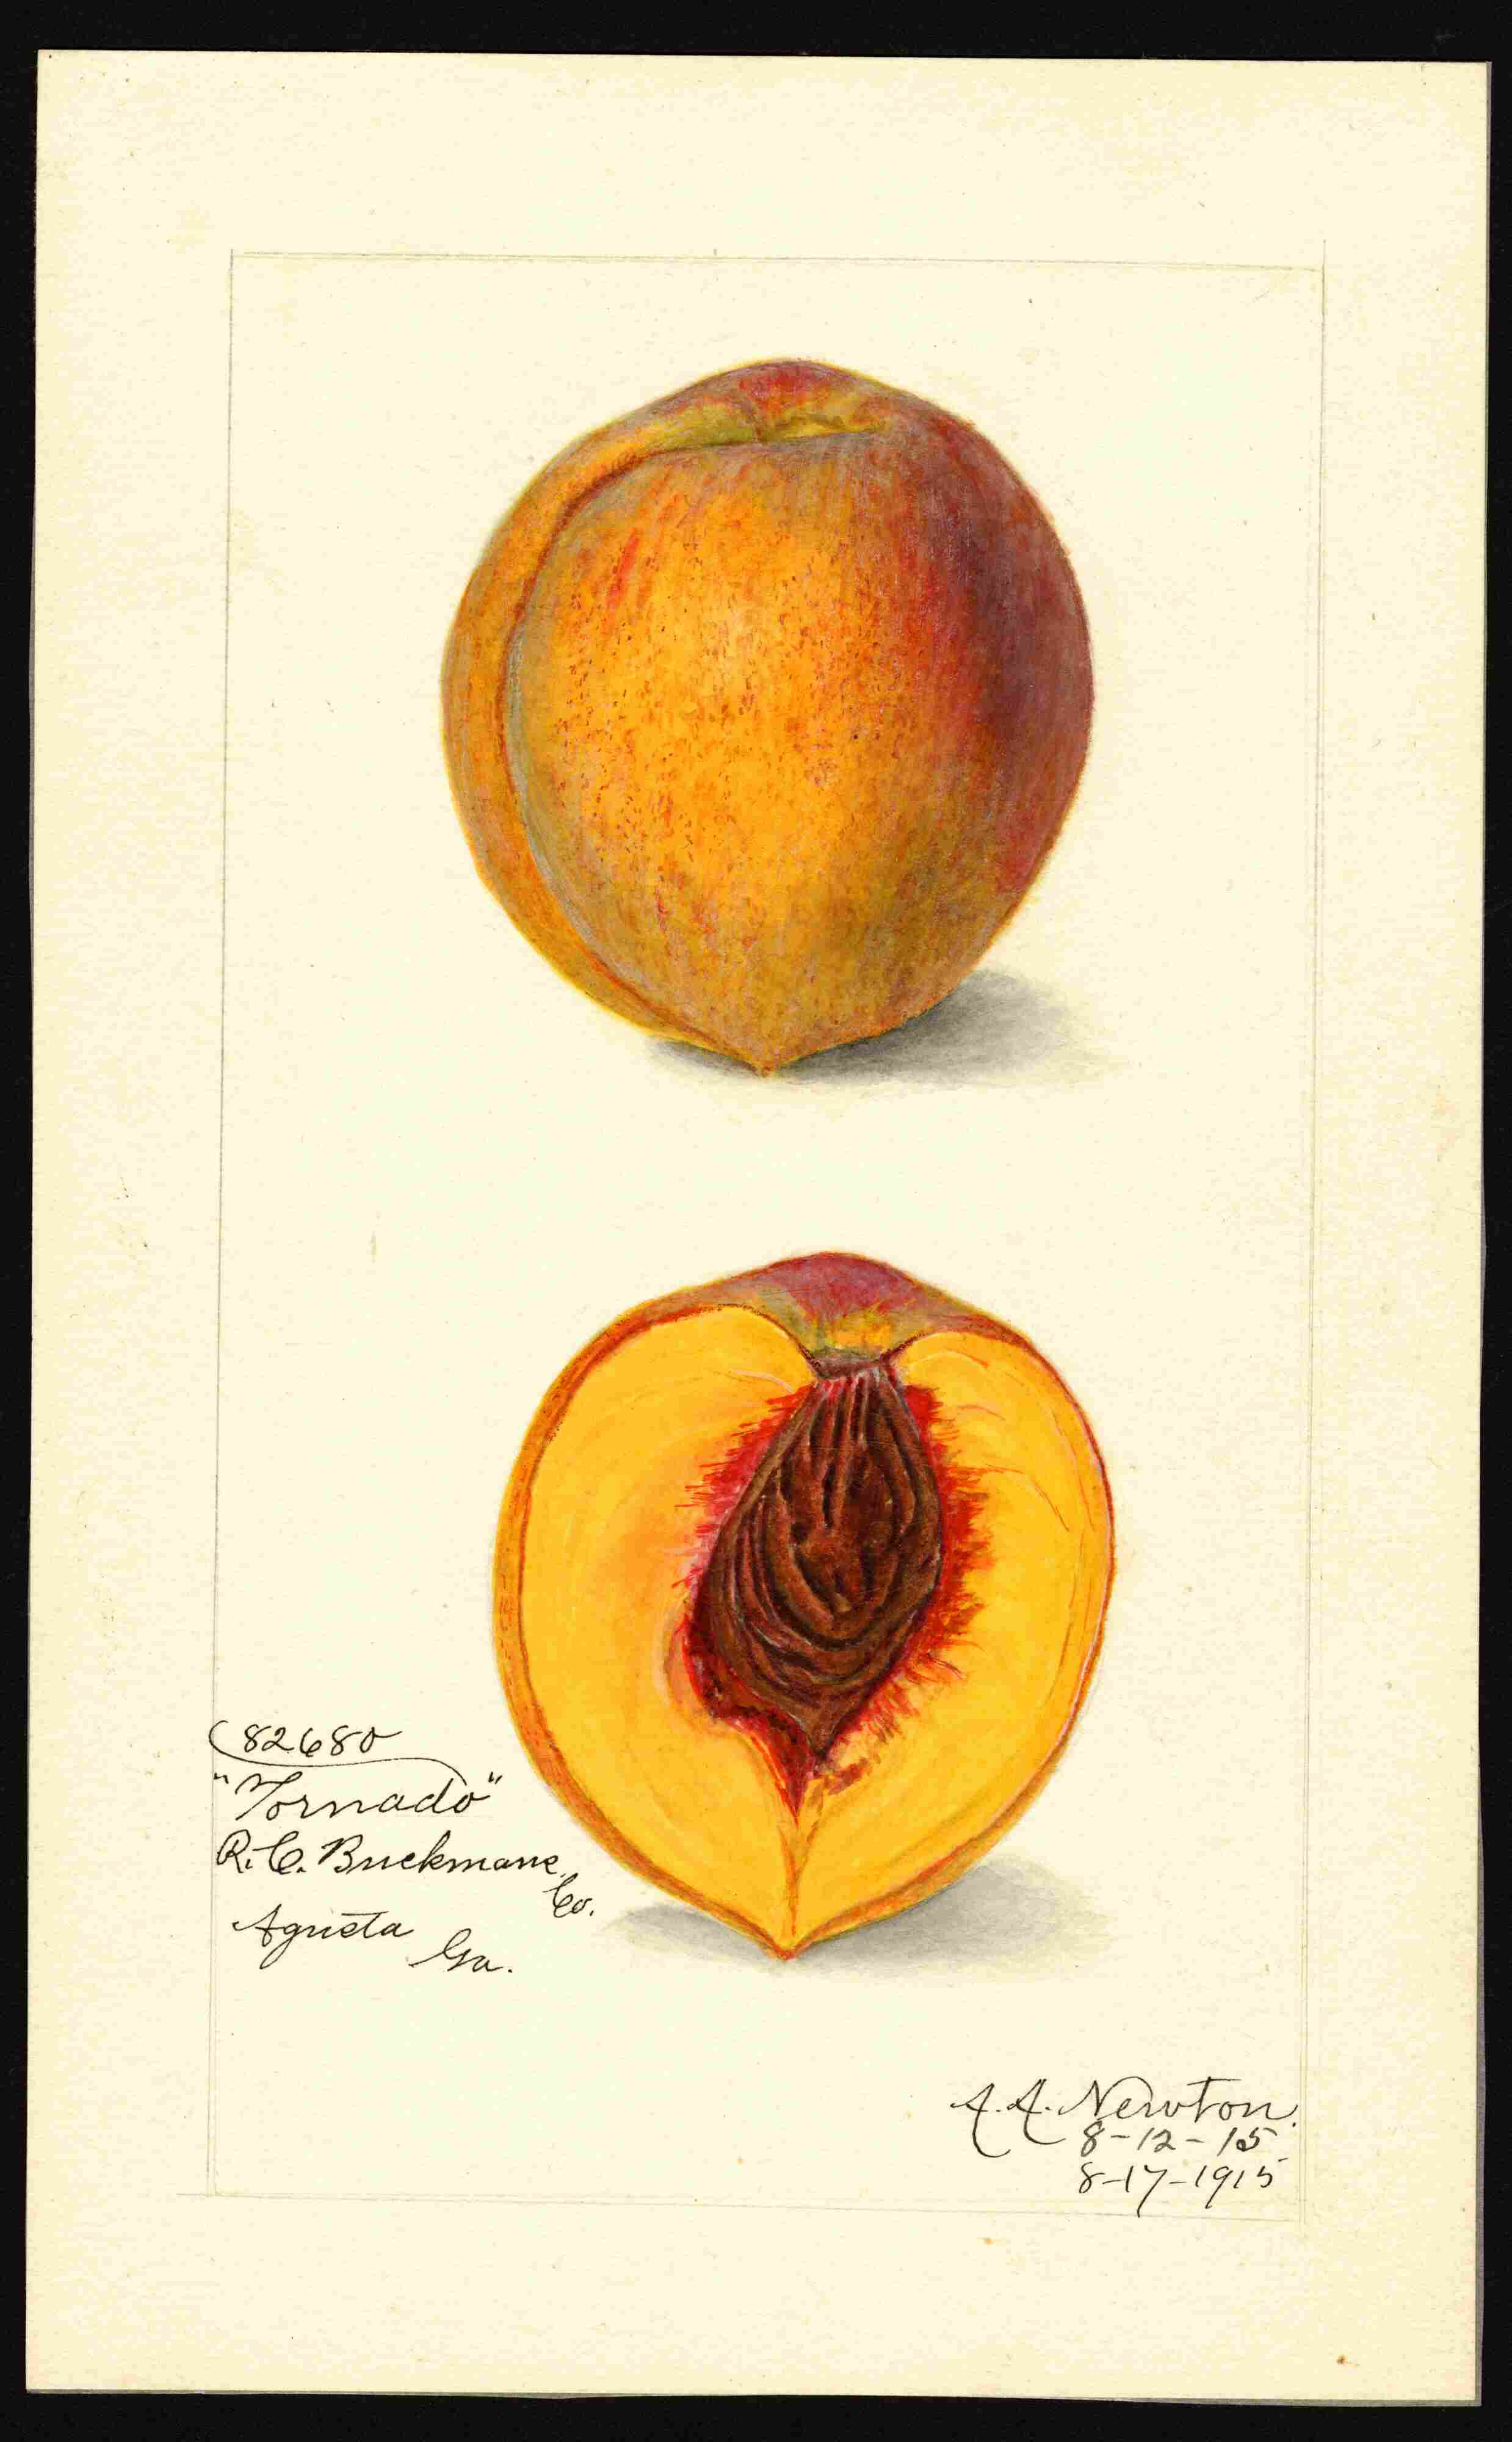 82680
"Tornado"
R. C. Buckmans
Co.
Agusta
Ga.
A. A. Newton.
8-12-15
8-17-1915